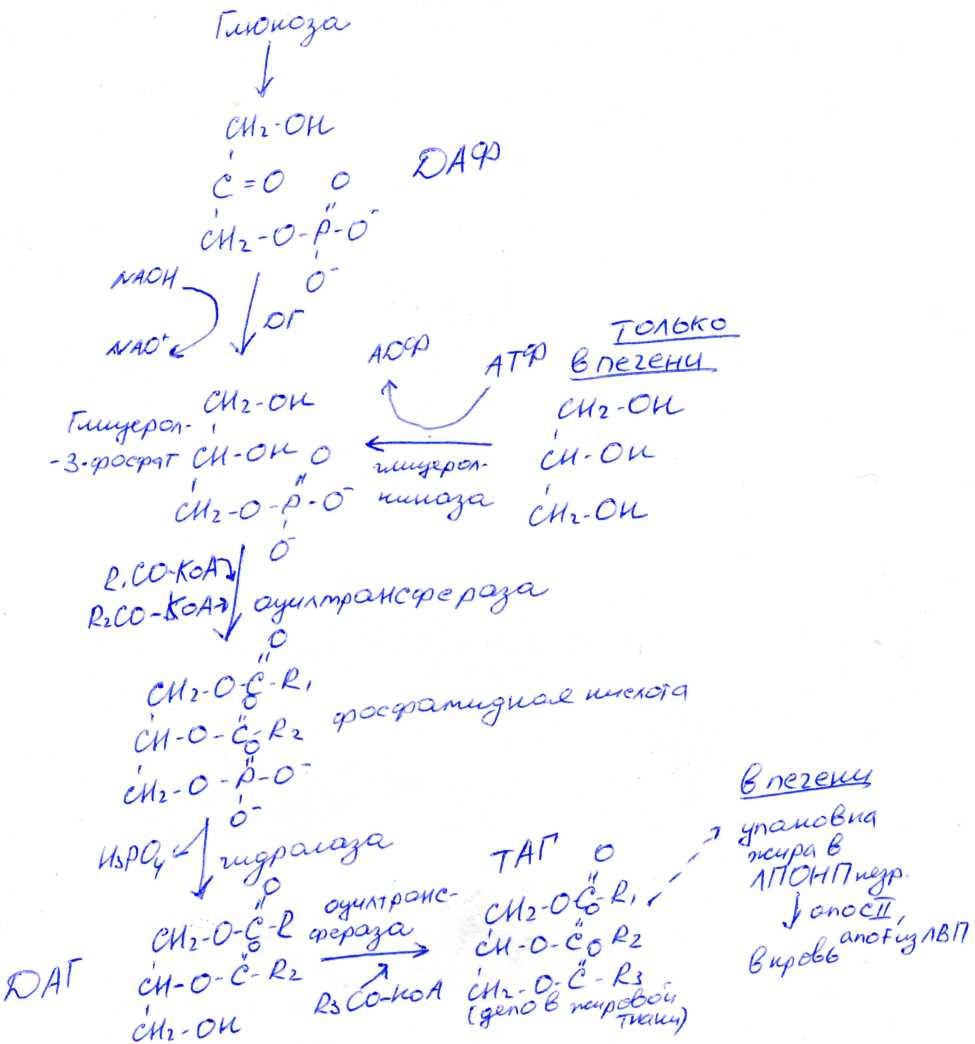 Глюкоза
CH₂-OH
C=O O
CH₂-O-P-O⁻
O⁻
ДАФ
NADH
NAD⁺
ДГ
CH₂-OH
Глицерол-
-3-фосфат
CH-OH O
CH₂-O-P-O⁻
O⁻
АДФ
АТФ
только
в печени
глицерол-
киназа
CH₂-OH
CH-OH
CH₂-OH
R₁CO-KoA
R₂CO-KoA
ацилтрансфераза
O
CH₂-O-C-R₁
O
CH-O-C-R₂
O
CH₂-O-P-O⁻
O⁻
фосфатидная кислота
H₃PO₄
гидролаза
ДАГ
O
CH₂-O-C-R
O
CH-O-C-R₂
CH₂-OH
ацилтранс-
фераза
R₃CO-KoA
ТАГ
O
CH₂-O-C-R₁
O
CH-O-C R₂
O
CH₂-O-C-R₃
(депо в жировой
ткани)
в печени
упаковка
жира в
ЛПОНП незр.
апоCII,
апоE из ЛВП
в кровь